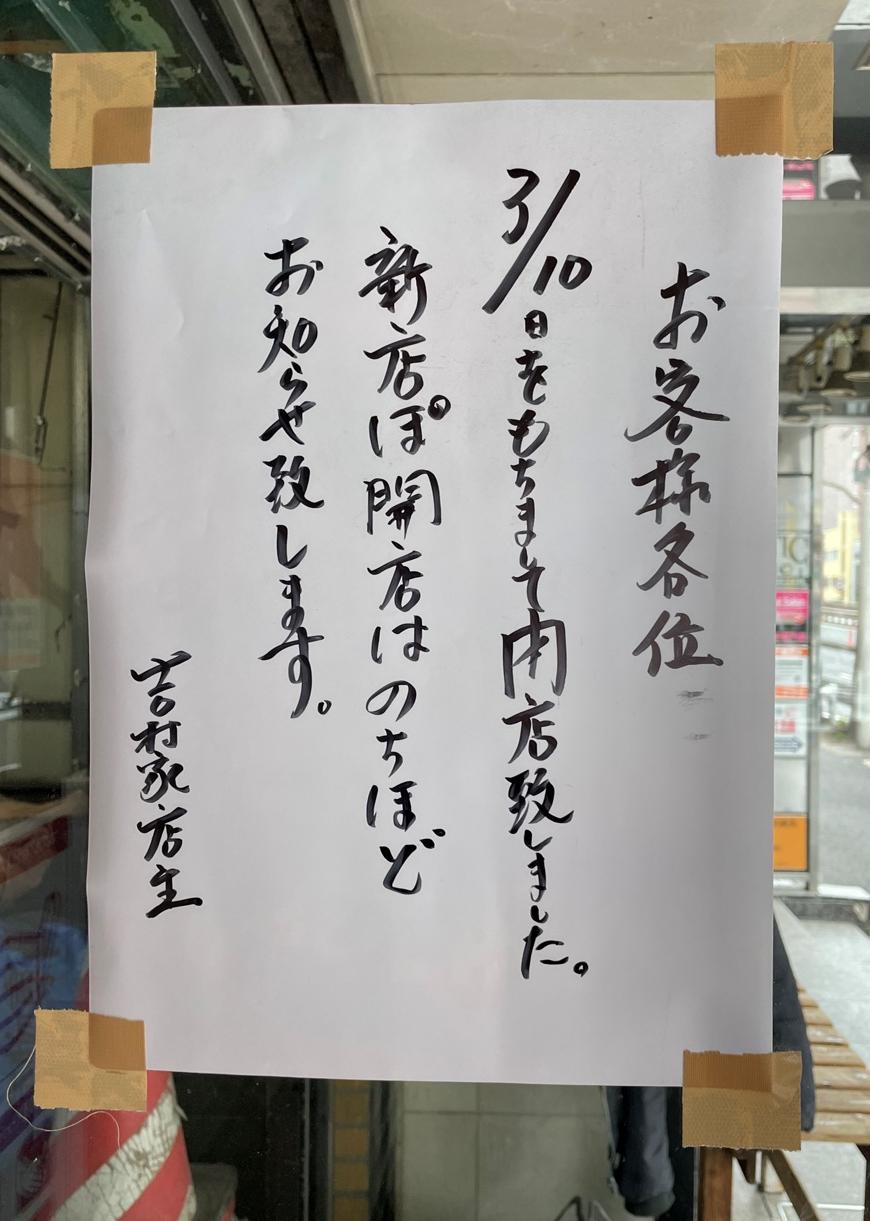 お客様各位
3/10日をもちまして閉店致しました。
新店ぽ開店はのちほど
お知らせ致します。
吉村家店主